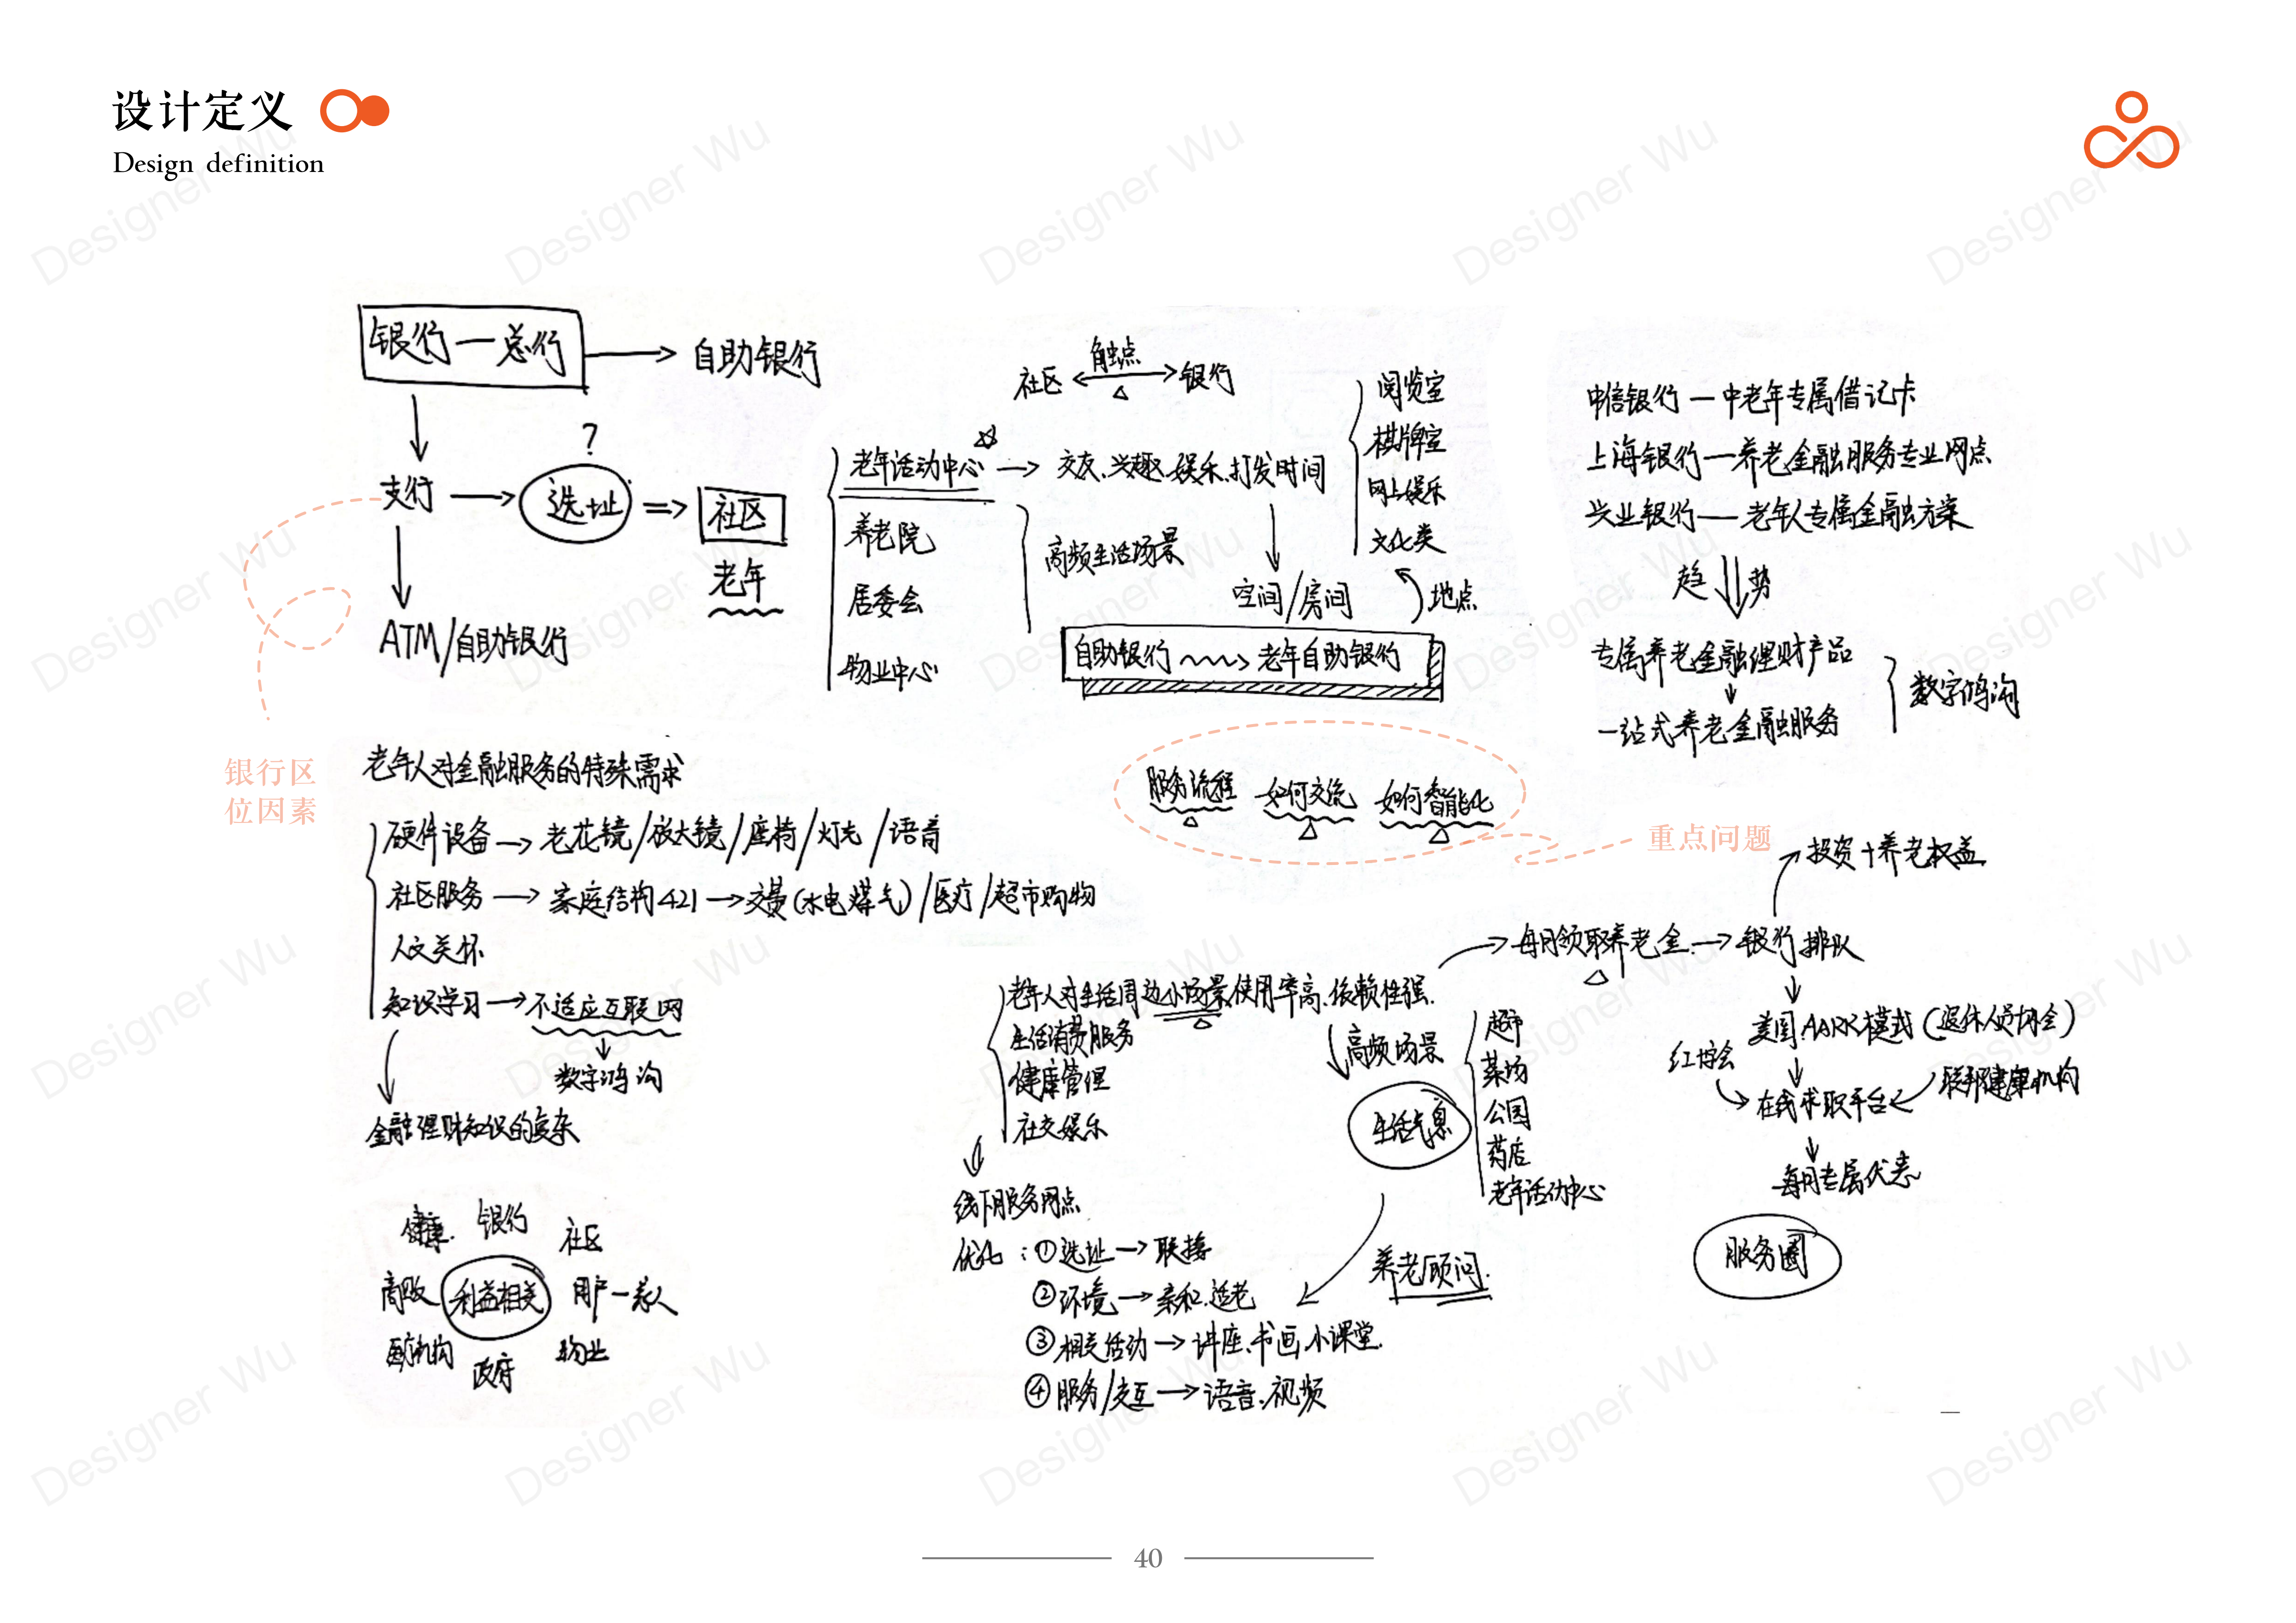 设计定义
Design definition
银行—总行 → 自助银行
支行 → 选址 ? ⇒ 社区
老年
ATM/自助银行
银行区
位因素
社区 ← 触点 → 银行
老年活动中心 → 交友、兴趣、娱乐、打发时间
养老院
居委会
物业中心
高频生活场景
阅览室
棋牌室
网上娱乐
文化类
空间/房间
地点
自助银行 → 老年自助银行
中信银行—中老年专属借记卡
上海银行—养老金融服务专业网点
兴业银行—老年人专属金融方案
趋势
专属养老金融理财产品
一站式养老金融服务
数字鸿沟
服务流程 如何交流 如何智能化
重点问题
老年人对金融服务的特殊需求
硬件设备 → 老花镜/放大镜/座椅/灯光/语音
社区服务 → 家庭结构421 → 交费(水电煤气)/医疗/超市购物
人文关怀
知识学习 → 不适应互联网
数字鸿沟
金融理财知识的复杂
健康 银行 社区
利益相关
用户—老人
政府
物业
老年人对生活周边小场景使用率高、依赖性强.
生活消费服务
健康管理
社交娱乐
线下服务网点
优化：①选址 → 联接
②环境 → 亲和.适老
③相关活动 → 讲座、书画、小课堂.
④服务/交互 → 语音、视频
高频场景
生活气息
超市
菜场
公园
药店
老年活动中心
养老顾问.
每月领取养老金 → 银行排队
投资+养老权益
美国AARK模式(退休人员协会)
红十字会
在线求职平台
联邦健康机构
服务圈
40
Designer Wu